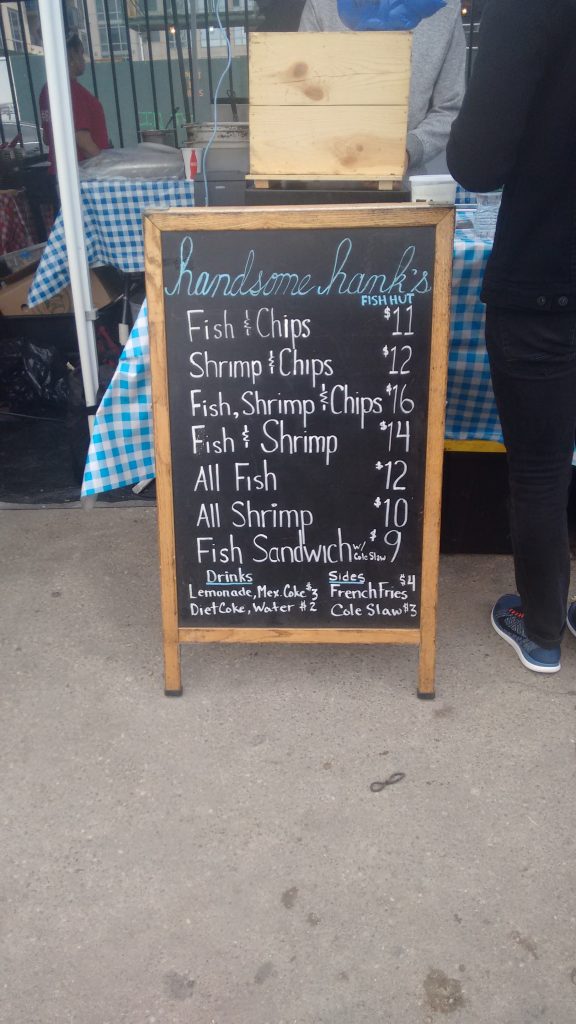 handsome hank's
FISH HUT
Fish & Chips $11
Shrimp & Chips $12
Fish, Shrimp & Chips $16
Fish & Shrimp $14
All Fish $12
All Shrimp $10
Fish Sandwich w/ Cole Slaw $9
Drinks
Lemonade, Mex. Coke $3
Diet Coke, Water $2
Sides
French Fries $4
Cole Slaw $3